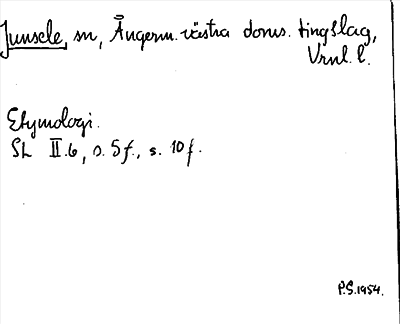 Junsele, sn, Ångerm. västra doms. tingslag,
Vrnl. l.
Etymologi.
SL II.6, s. 5 f., s. 10 f.
P.S. 1954.